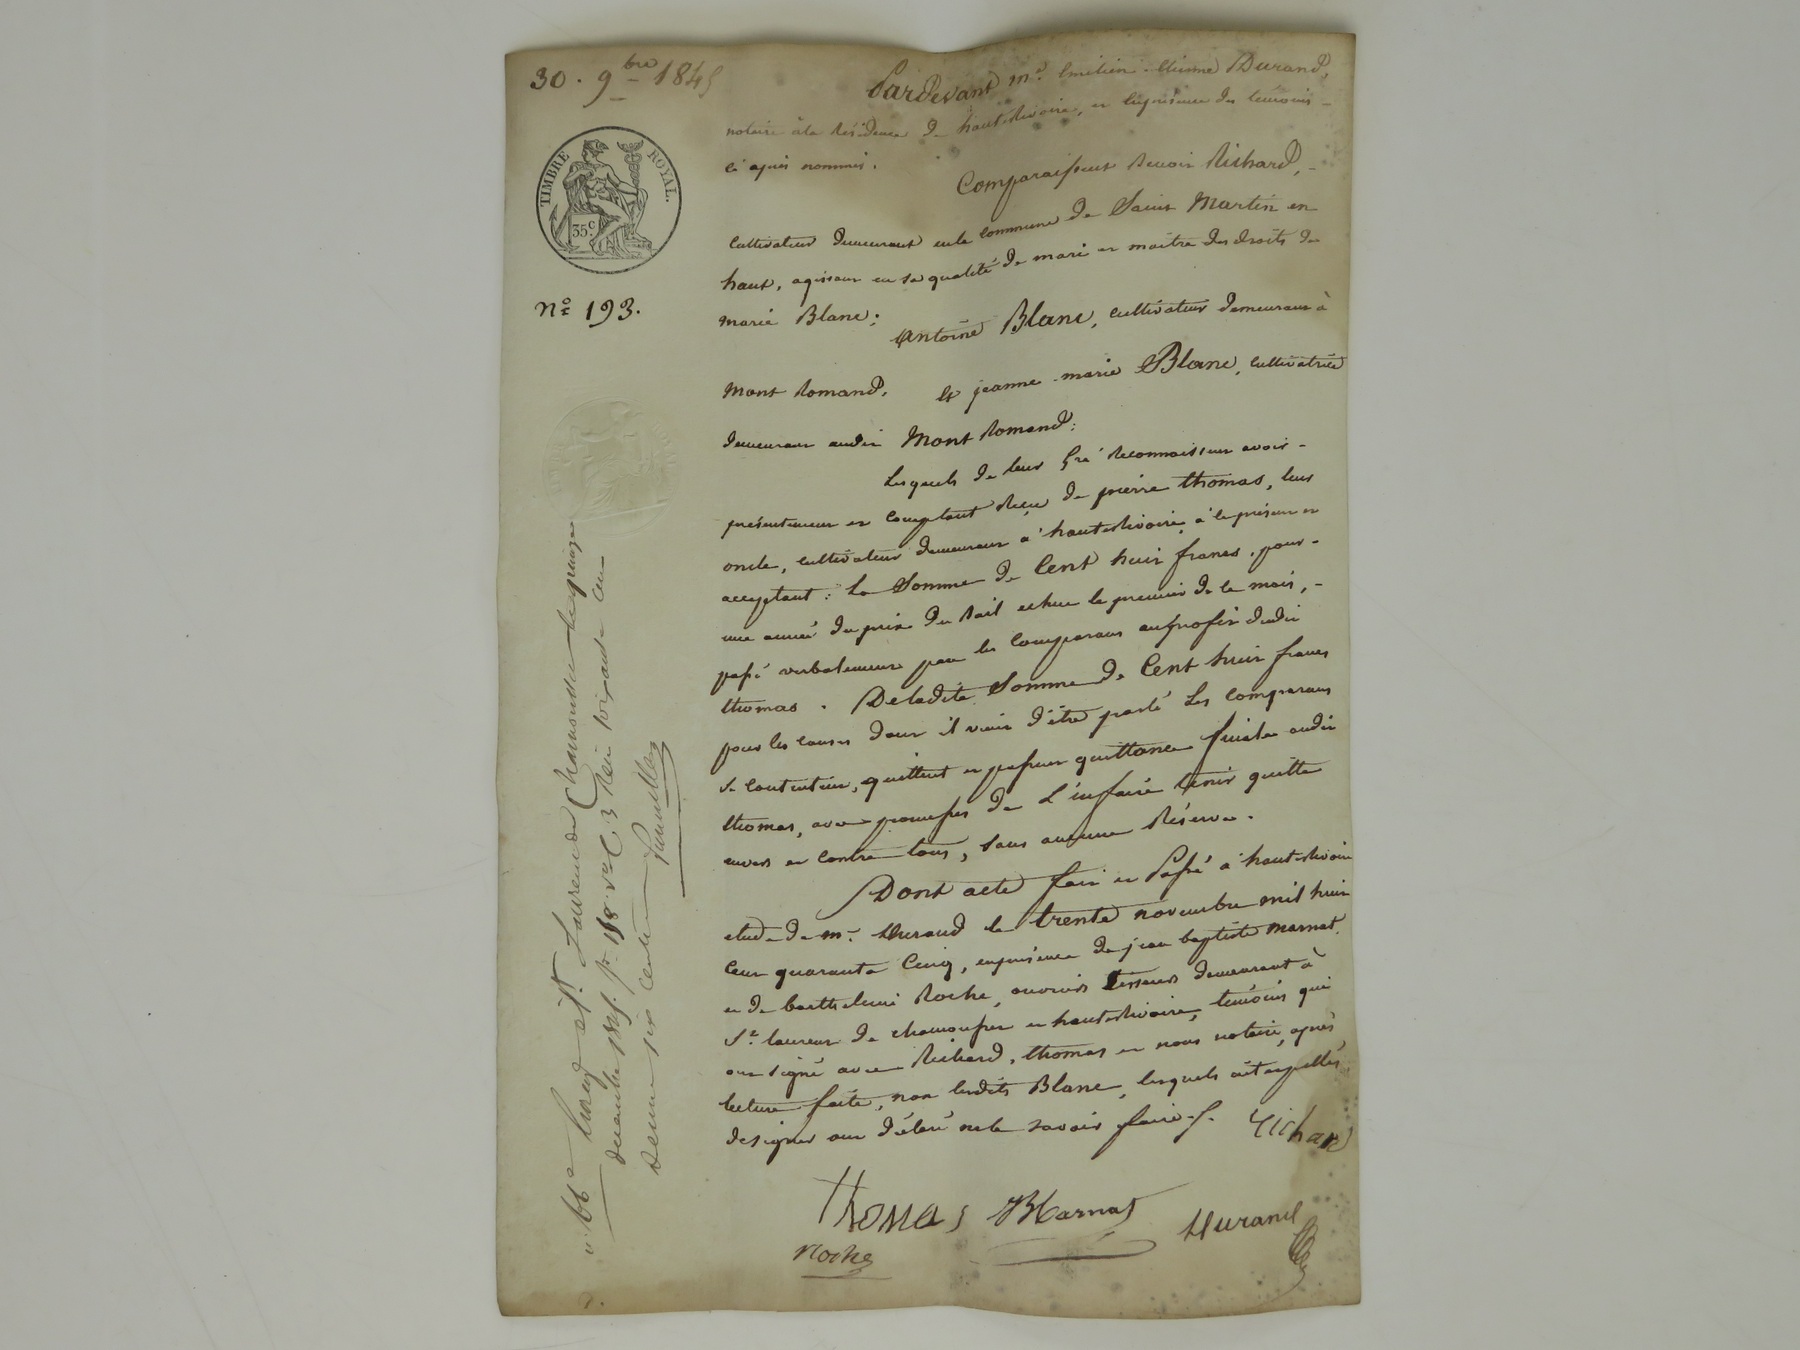 30. 9bre 1845
Pardevant me. Emilien-Etienne Durand,
notaire à la Résidence de hauterivoire, en la présence des temoins
ci après nommés.
TIMBRE ROYAL.
35c.
Comparaissent Benoit Richard,
Cultivateur demeurant en la commune de Saint Martin en
haut, agissant en sa qualité de mari et maitre des droits de
marie Blanc;
No 193.
Antoine Blanc, cultivateur demeurant à
Mont Romand,
Et jeanne-marie Blanc, cultivatrice
demeurant audit Mont Romand:
Lesquels de leur Gré Reconnaissent avoir
présentement et comptant Reçu de pierre thomas, leur
oncle, cultivateur demeurant à hauterivoire, à la présent et
acceptant: La Somme de Cent huit francs, pour
une année du prix du Bail echue le premier de ce mois,
passé verbalement par les comparans au profit dudit
thomas. De ladite Somme de Cent huit francs
pour les causes dont il vient d'être parlé Les Comparans
se contentent, quittent et passent quittance finale audit
thomas, avec promesses de l'en faire tenir quitte
envers et contre tous, Sans aucune Réserve.
Dont acte fait et Passé à hauterivoire
etude de me. Durand le trente novembre mil huit
Cent quarante Cinq, en présence de jean baptiste Marnat,
et de barthelemi Roche, ouvriers tisseurs demeurant à
St. laurent de chamousset et hauterivoire, témoins qui
ont signé avec Richard, thomas et nous notaire, après
lecture faite, non lesdits Blanc, lesquels ont appellés
de signer ont déclaré ne le savoir faire.
Richard
Thomas
B Marnat
Durand
Roche
Laurent de Chamousset le quinze
décembre 1845. fo. 118 vo. C. 3 Reçu soixante cent